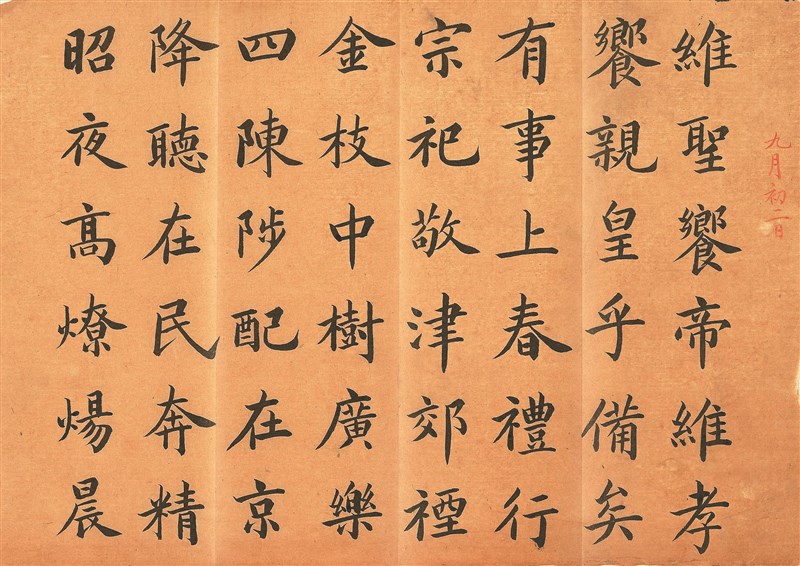 九月初二日
維聖饗帝維孝
饗親皇乎備矣
有事上春禮行
宗祀敬津郊禋
金枝中樹廣樂
四陳陟配在京
降聴在民奔精
昭夜髙燎煬晨